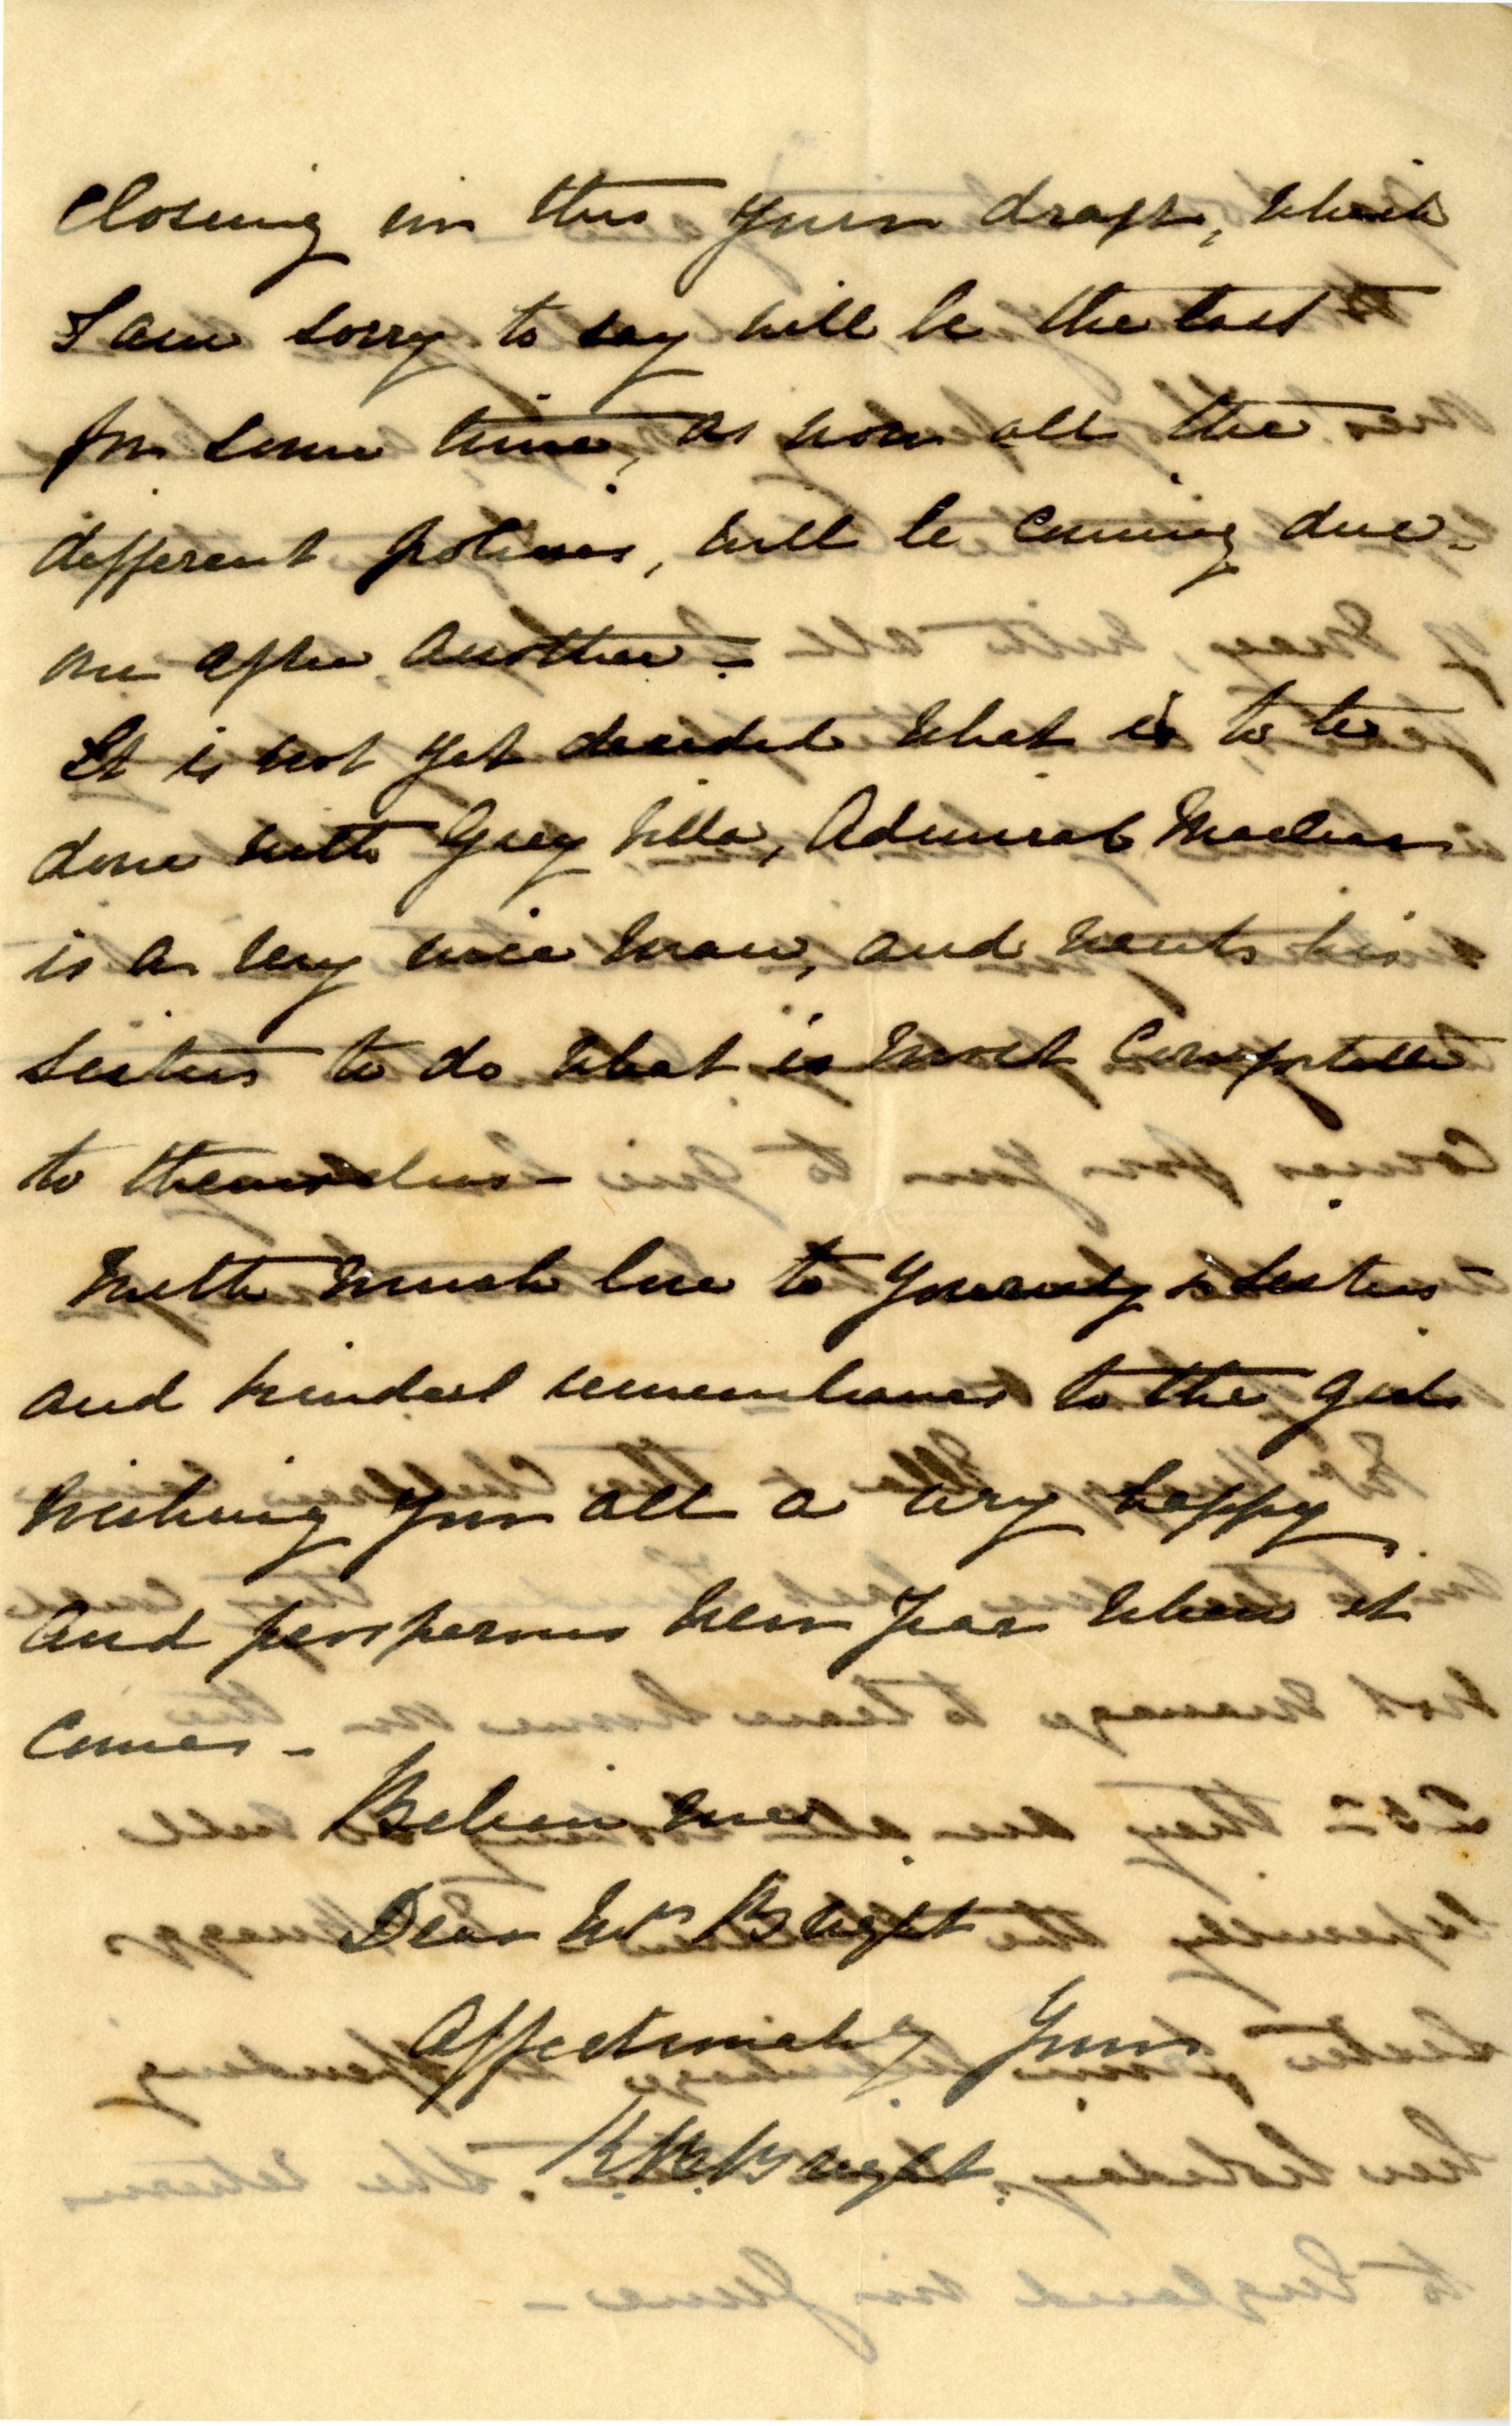 closing in this your draft, which
I am sorry to say will be the last
for some time, as now all the
different policies, will be coming due -
one after another -
It is not yet decided what is to be
done with Grey Villa, Admiral Maclear
is a very nice man, and wants his
sisters to do what is most comfortable
to themselves -
With much love to yourself & sisters
and kindest remembrances to the girls
wishing you all a very happy
and prosperous New Year when it
comes -
Believe me
Dear Mrs Bright
Affectionately Yours
Bright